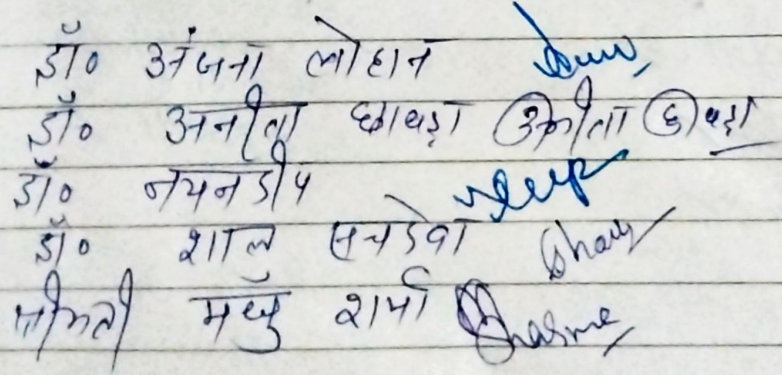 डॉ० अंजना लोहान
डॉ० अनीता छाबड़ा अनीता छाबड़ा
डॉ० नयनदीप
डॉ० शालु सचदेवा Shalu
श्रीमती मधु शर्मा Sharma